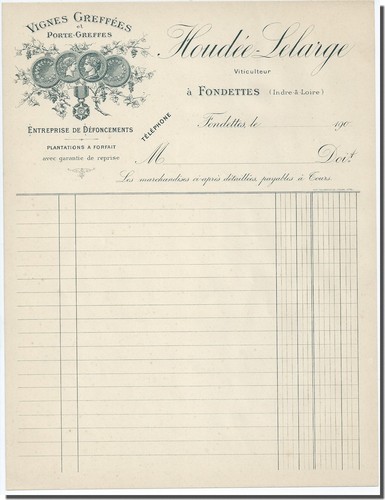 VIGNES GREFFÉES
et
PORTE-GREFFES
ENTREPRISE DE DÉFONCEMENTS
PLANTATIONS A FORFAIT
avec garantie de reprise
TÉLÉPHONE
Houdée-Lelarge
Viticulteur
à FONDETTES (Indre-&-Loire)
Fondettes, le 190
M Doit
Les marchandises ci-après détaillées, payables à Tours.